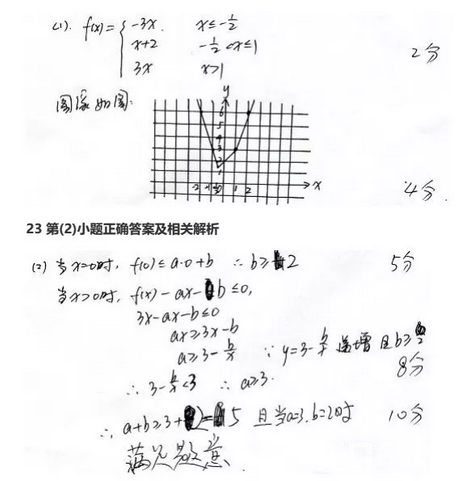 (1). f(x)={ -3x. x≤-1/2
x+2 -1/2<x≤1
3x x>1
2分
图像如图:
y
6
5
4
3
2
1
-2 -1 1 2 x
4分
23 第(2)小题正确答案及相关解析
(2) 当x=0时, f(0)≤a·0+b ∴b≥2 5分
当x>0时, f(x)-ax-b≤0,
3x-ax-b≤0
ax≥3x-b
a≥3-b/x ∵ y=3-b/x 递增 且b≥2
8分
∴ 3-b/x<3 ∴ a≥3.
∴ a+b≥3+2=5 且当a=3.b=2时 10分
满足题意.